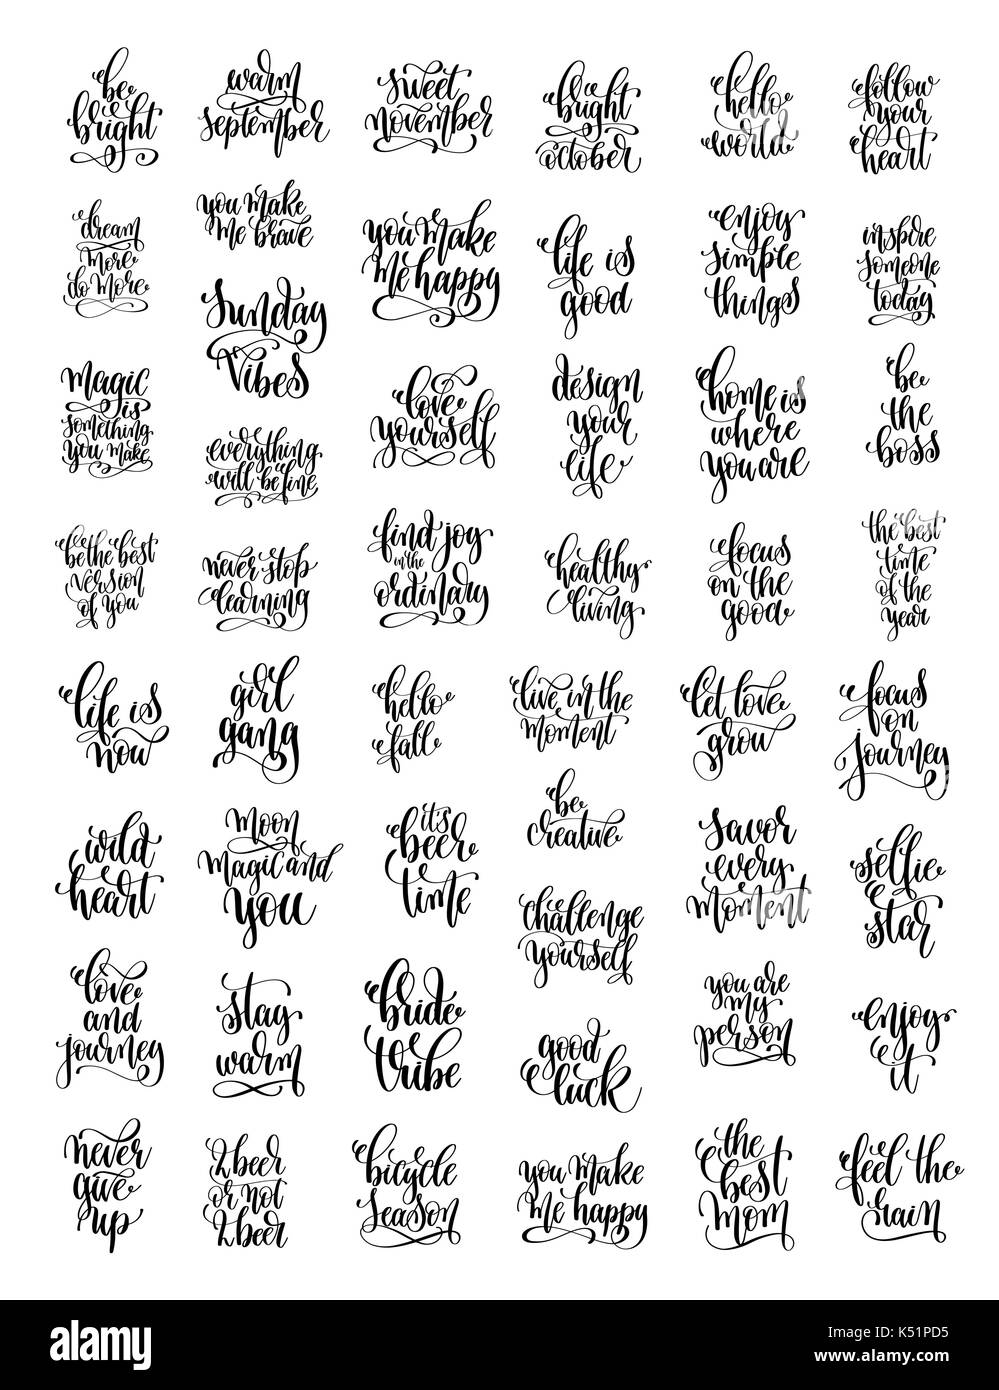 be
bright
warm
september
sweet
november
bright
october
hello
world
follow
your
heart
dream
more
do more
you make
me brave
you make
me happy
life is
good
enjoy
simple
things
inspire
someone
today
Sunday
Vibes
magic
is
something
you make
everything
will be fine
love
yourself
design
your
life
home is
where
you are
be
the
boss
be the best
version
of you
never stop
learning
find joy
in the
ordinary
healthy
living
focus
on the
good
the best
time
of the
year
life is
now
girl
gang
hello
fall
live in the
moment
let love
grow
focus
on
journey
wild
heart
moon
magic and
you
it's
beer
time
be
creative
challenge
yourself
savor
every
moment
selfie
star
love
and
journey
stay
warm
bride
tribe
good
luck
you are
my
person
enjoy
it
never
give
up
2 beer
or not
2 beer
bicycle
season
you make
me happy
the
best
mom
feel the
rain
alamy
Image ID: K51PD5
www.alamy.com